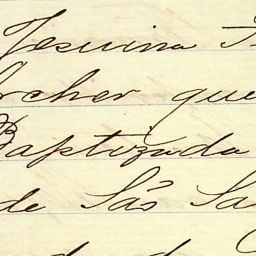 Jesuina
orcher que
Baptizada
de São Sa